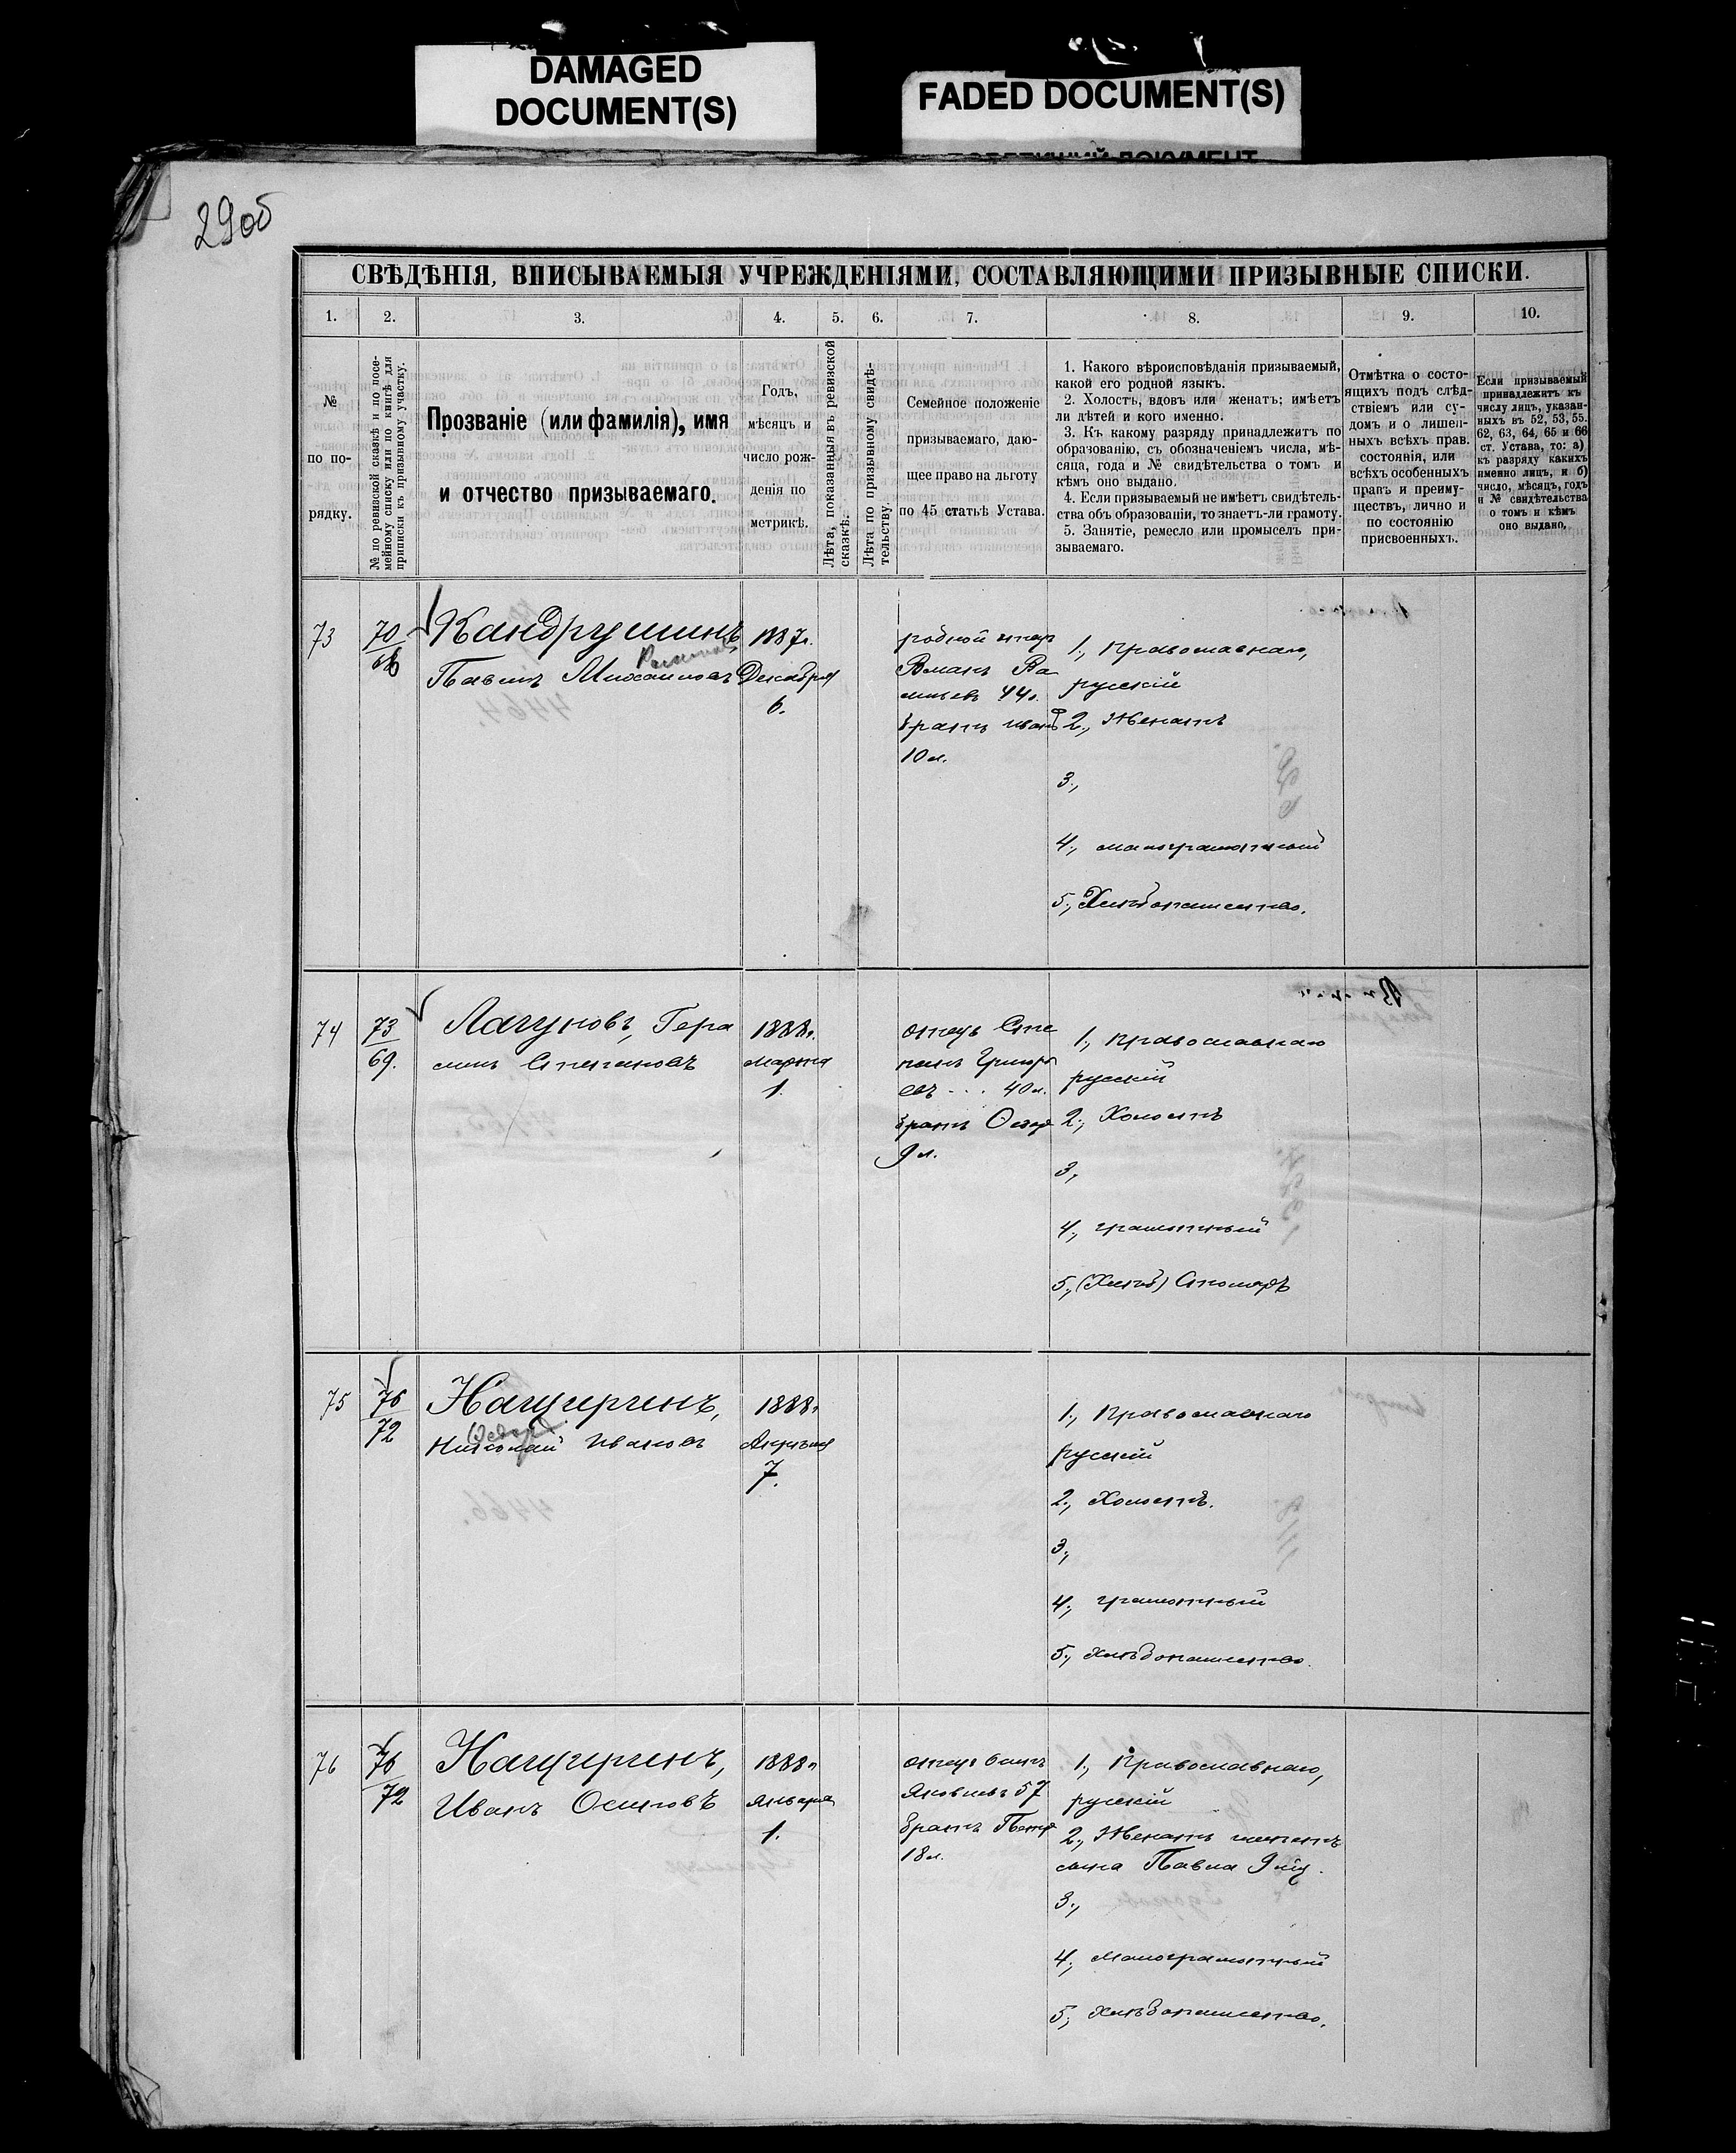 DAMAGED
DOCUMENT(S)
FADED DOCUMENT(S)
29об
СВѢДѢНІЯ, ВПИСЫВАЕМЫЯ УЧРЕЖДЕНІЯМИ, СОСТАВЛЯЮЩИМИ ПРИЗЫВНЫЕ СПИСКИ.
1. 2. 3. 4. 5. 6. 7. 8. 9. 10.
№
по по-
рядку.
№ по ревизской сказкѣ и по посе-
мейному списку или по книгѣ для
приписки къ призывному участку.
Прозваніе (или фамилія), имя
и отчество призываемаго.
Годъ,
мѣсяцъ и
число рож-
денія по
метрикѣ.
Лѣта, показанныя въ ревизской
сказкѣ.
Лѣта по призывному свидѣ-
тельству.
Семейное положеніе
призываемаго, даю-
щее право на льготу
по 45 статьѣ Устава.
1. Какого вѣроисповѣданія призываемый,
какой его родной языкъ.
2. Холостъ, вдовъ или женатъ; имѣетъ
ли дѣтей и кого именно.
3. Къ какому разряду принадлежитъ по
образованію, съ обозначеніемъ числа, мѣ-
сяца, года и № свидѣтельства о томъ и
кѣмъ оно выдано.
4. Если призываемый не имѣетъ свидѣтель-
ства объ образованіи, то знаетъ-ли грамоту.
5. Занятіе, ремесло или промыселъ при-
зываемаго.
Отмѣтка о состо-
ящихъ подъ слѣд-
ствіемъ или су-
домъ и о лишен-
ныхъ всѣхъ прав.
состоянія, или
всѣхъ особенныхъ
правъ и преиму-
ществъ, лично и
по состоянію
присвоенныхъ.
Если призываемый
принадлежитъ къ
числу лицъ, указан-
ныхъ въ 52, 53, 55.
62, 63, 64, 65 и 66
ст. Устава, то: а)
къ разряду какихъ
именно лицъ, и б)
число, мѣсяцъ, годъ
и № свидѣтельства
о томъ и кѣмъ
оно выдано.
73
70
Кандрушинъ
Павелъ Михаиловъ
1887г.
Декабря
6.
44л.
братъ Иванъ
10л.
1., Православнаго,
русскій
2., Женатъ
3.,
4., малограмотный
5., Хлѣбопашество.
74
73
69.
Лагуновъ, Гера
симъ Степановъ
1888г.
марта
1.
отецъ Сте
панъ Григорь
евъ . . . 40л.
братъ Ѳедоръ
9л.
1., Православнаго
русскій
2., Холостъ
3,
4., грамотный
5., (Хлѣб) Столяръ
75
76
72
Нащиргинъ,
Николай Ивановъ
1888г
Апрѣля
7.
1., Православнаго
русскій
2., Холостъ.
3.,
4., грамотный
5., Хлѣбопашество.
76
76
72
Нащиргинъ,
Иванъ Осиповъ
1888г
Января
1.
отецъ Осипъ
Яковлевъ 57
братъ Петръ
18л.
1., Православнаго,
русскій
2., Женатъ имѣетъ
сына Павла 9 мц.
3.,
4., малограмотный
5., Хлѣбопашество.